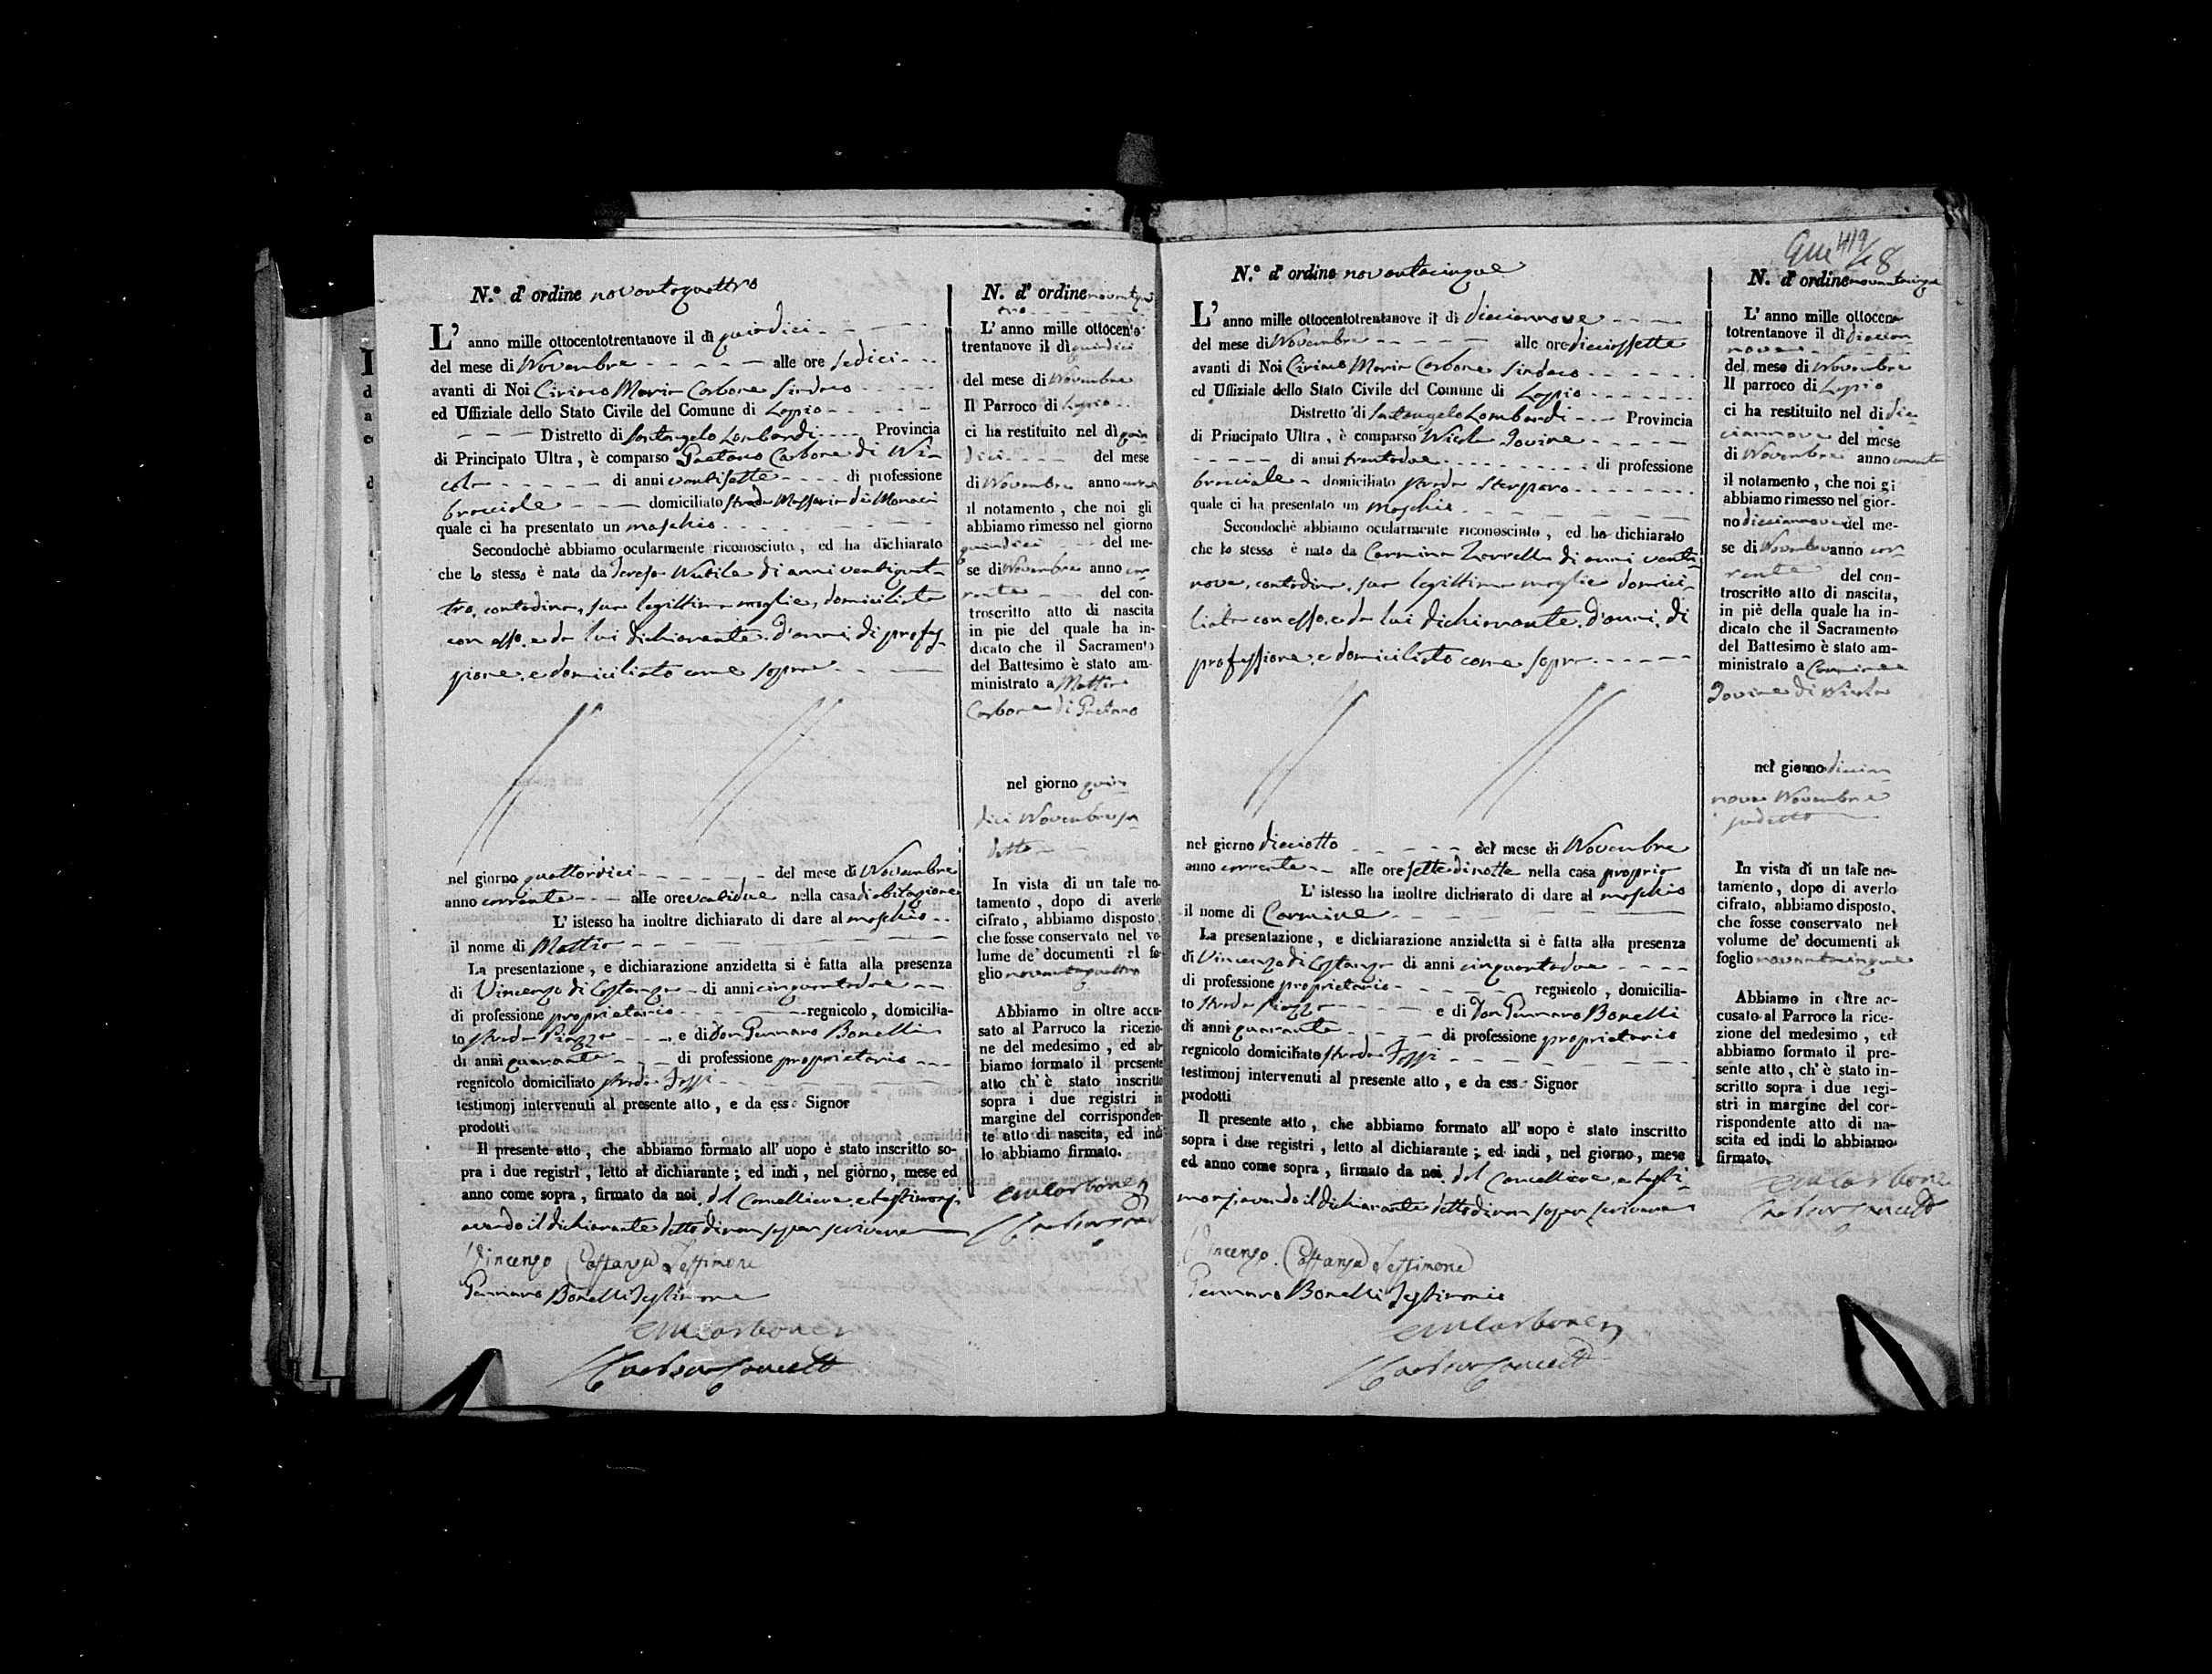 N.° d' ordine novantaquattro
L' anno mille ottocentotrentanove il dì quindici
del mese di Novembre alle ore sedici
avanti di Noi Ciriaco Maria Carbone Sindaco
ed Uffiziale dello Stato Civile del Comune di Lapio
Distretto di Santangelo Lombardi Provincia
di Principato Ultra, è comparso Gaetano Carbone di Ni-
cola di anni ventisette di professione
bracciale domiciliato strada Massaria di Monaci
quale ci ha presentato un maschio
Secondochè abbiamo ocularmente riconosciuto, ed ha dichiarato
che lo stesso è nato da Teresa di anni ventiquat-
tro, contadina, sua legittima moglie, domiciliata
con esso, e da lui dichiarante, d'anni, di profes-
sione, e domiciliato come sopra
nel giorno quattordici del mese di Novembre
anno corrente alle ore ventidue nella casa di abitazione
L' istesso ha inoltre dichiarato di dare al maschio
il nome di Mattia
La presentazione, e dichiarazione anzidetta si è fatta alla presenza
di Vincenzo di Costanzo di anni cinquantadue
di professione proprietario regnicolo, domicilia-
to strada Piazza e di Don Gennaro Bonelli
di anni quaranta di professione proprietario
regnicolo domiciliato strada Fossi
testimonj intervenuti al presente atto, e da esso Signor
prodotti
Il presente atto, che abbiamo formato all' uopo è stato inscritto so-
pra i due registri, letto al dichiarante; ed indi, nel giorno, mese ed
anno come sopra, firmato da noi, dal Cancelliere, e testimonj
avendo il dichiarante detto di non saper scrivere
Vincenzo Costanzo Testimone
Gennaro Bonelli Testimone
CMCarbone
N. d' ordine novantaquat
tro
L' anno mille ottocento
trentanove il dì quindici
del mese di Novembre
Il Parroco di Lapio
ci ha restituito nel dì quin
dici del mese
di Novembre anno corrente
il notamento, che noi gli
abbiamo rimesso nel giorno
quindici del me-
se di Novembre anno cor-
rente del con-
troscritto atto di nascita
in pie del quale ha in-
dicato che il Sacramento
del Battesimo è stato am-
ministrato a Mattia
Carbone di Gaetano
nel giorno quin
dici Novembre su
detto
In vista di un tale no-
tamento, dopo di averlo
cifrato, abbiamo disposto,
che fosse conservato nel vo-
lume de' documenti al fo-
glio novantaquattro
Abbiamo in oltre accu-
sato al Parroco la ricezio-
ne del medesimo, ed ab-
biamo formato il presente
atto ch' è stato inscritto
sopra i due registri in
margine del corrisponden-
te atto di nascita, ed indi
lo abbiamo firmato.
CMCarbone
N.° d' ordine novantacinque
L' anno mille ottocentotrentanove il dì diciannove
del mese di Novembre alle ore diciassette
avanti di Noi Ciriaco Maria Carbone Sindaco
ed Uffiziale dello Stato Civile del Comune di Lapio
Distretto di Santangelo Lombardi Provincia
di Principato Ultra, è comparso Nicola Iovine
di anni trentadue di professione
bracciale domiciliato strada Sterparo
quale ci ha presentato un maschio
Secondochè abbiamo ocularmente riconosciuto, ed ha dichiarato
che lo stesso è nato da Carmina Zarrella di anni venti
nove, contadina, sua legittima moglie domici-
liata con esso, e da lui dichiarante, d'anni, di
professione, e domiciliato come sopra
nel giorno dieciotto del mese di Novembre
anno corrente alle ore sette di notte nella casa propria
L' istesso ha inoltre dichiarato di dare al maschio
il nome di Carmine
La presentazione, e dichiarazione anzidetta si è fatta alla presenza
di Vincenzo di Costanzo di anni cinquantadue
di professione proprietario regnicolo, domicilia-
to strada Piazza e di Don Gennaro Bonelli
di anni quaranta di professione proprietario
regnicolo domiciliato strada Fossi
testimonj intervenuti al presente atto, e da esso Signor
prodotti
Il presente atto, che abbiamo formato all' uopo è stato inscritto
sopra i due registri, letto al dichiarante; ed indi, nel giorno, mese
ed anno come sopra, firmato da noi, dal Cancelliere, e testi-
monj avendo il dichiarante detto di non saper scrivere
Vincenzo Costanzo Testimone
Gennaro Bonelli Testimonio
CMCarbone
N. d' ordine novantacinque
L' anno mille ottocento
totrentanove il dì dician
nove
del mese di Novembre
Il parroco di Lapio
ci ha restituito nel dì di-
ciannove del mese
di Novembre anno corrente
il notamento, che noi gi
abbiamo rimesso nel gior-
no diciannove del me-
se di Novembre anno cor-
rente del con-
troscritto atto di nascita,
in piè della quale ha in-
dicato che il Sacramento
del Battesimo è stato am-
ministrato a Carmine
Iovine di Nicola
nel giorno dician
nove Novembre
sudetto
In vista di un tale no-
tamento, dopo di averlo
cifrato, abbiamo disposto,
che fosse conservato nel
volume de' documenti al
foglio novantacinque
Abbiamo in oltre ac-
cusato al Parroco la rice-
zione del medesimo, ed
abbiamo formato il pre-
sente atto, ch' è stato in-
scritto sopra i due regi-
stri in margine del cor-
rispondente atto di na-
scita ed indi lo abbiamo
firmato.
CMCarbone